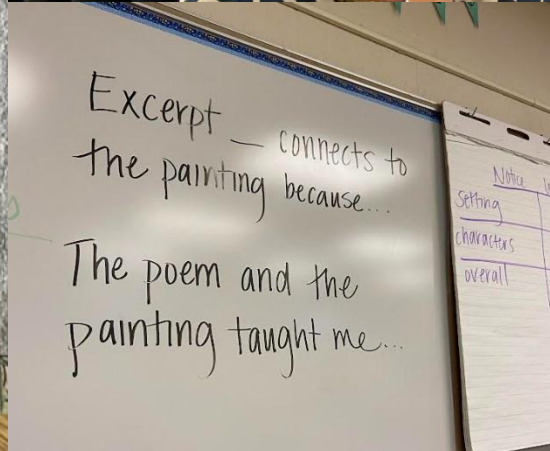 Excerpt _ connects to
the painting because...
The poem and the
painting taught me...
Notice
setting
characters
overall